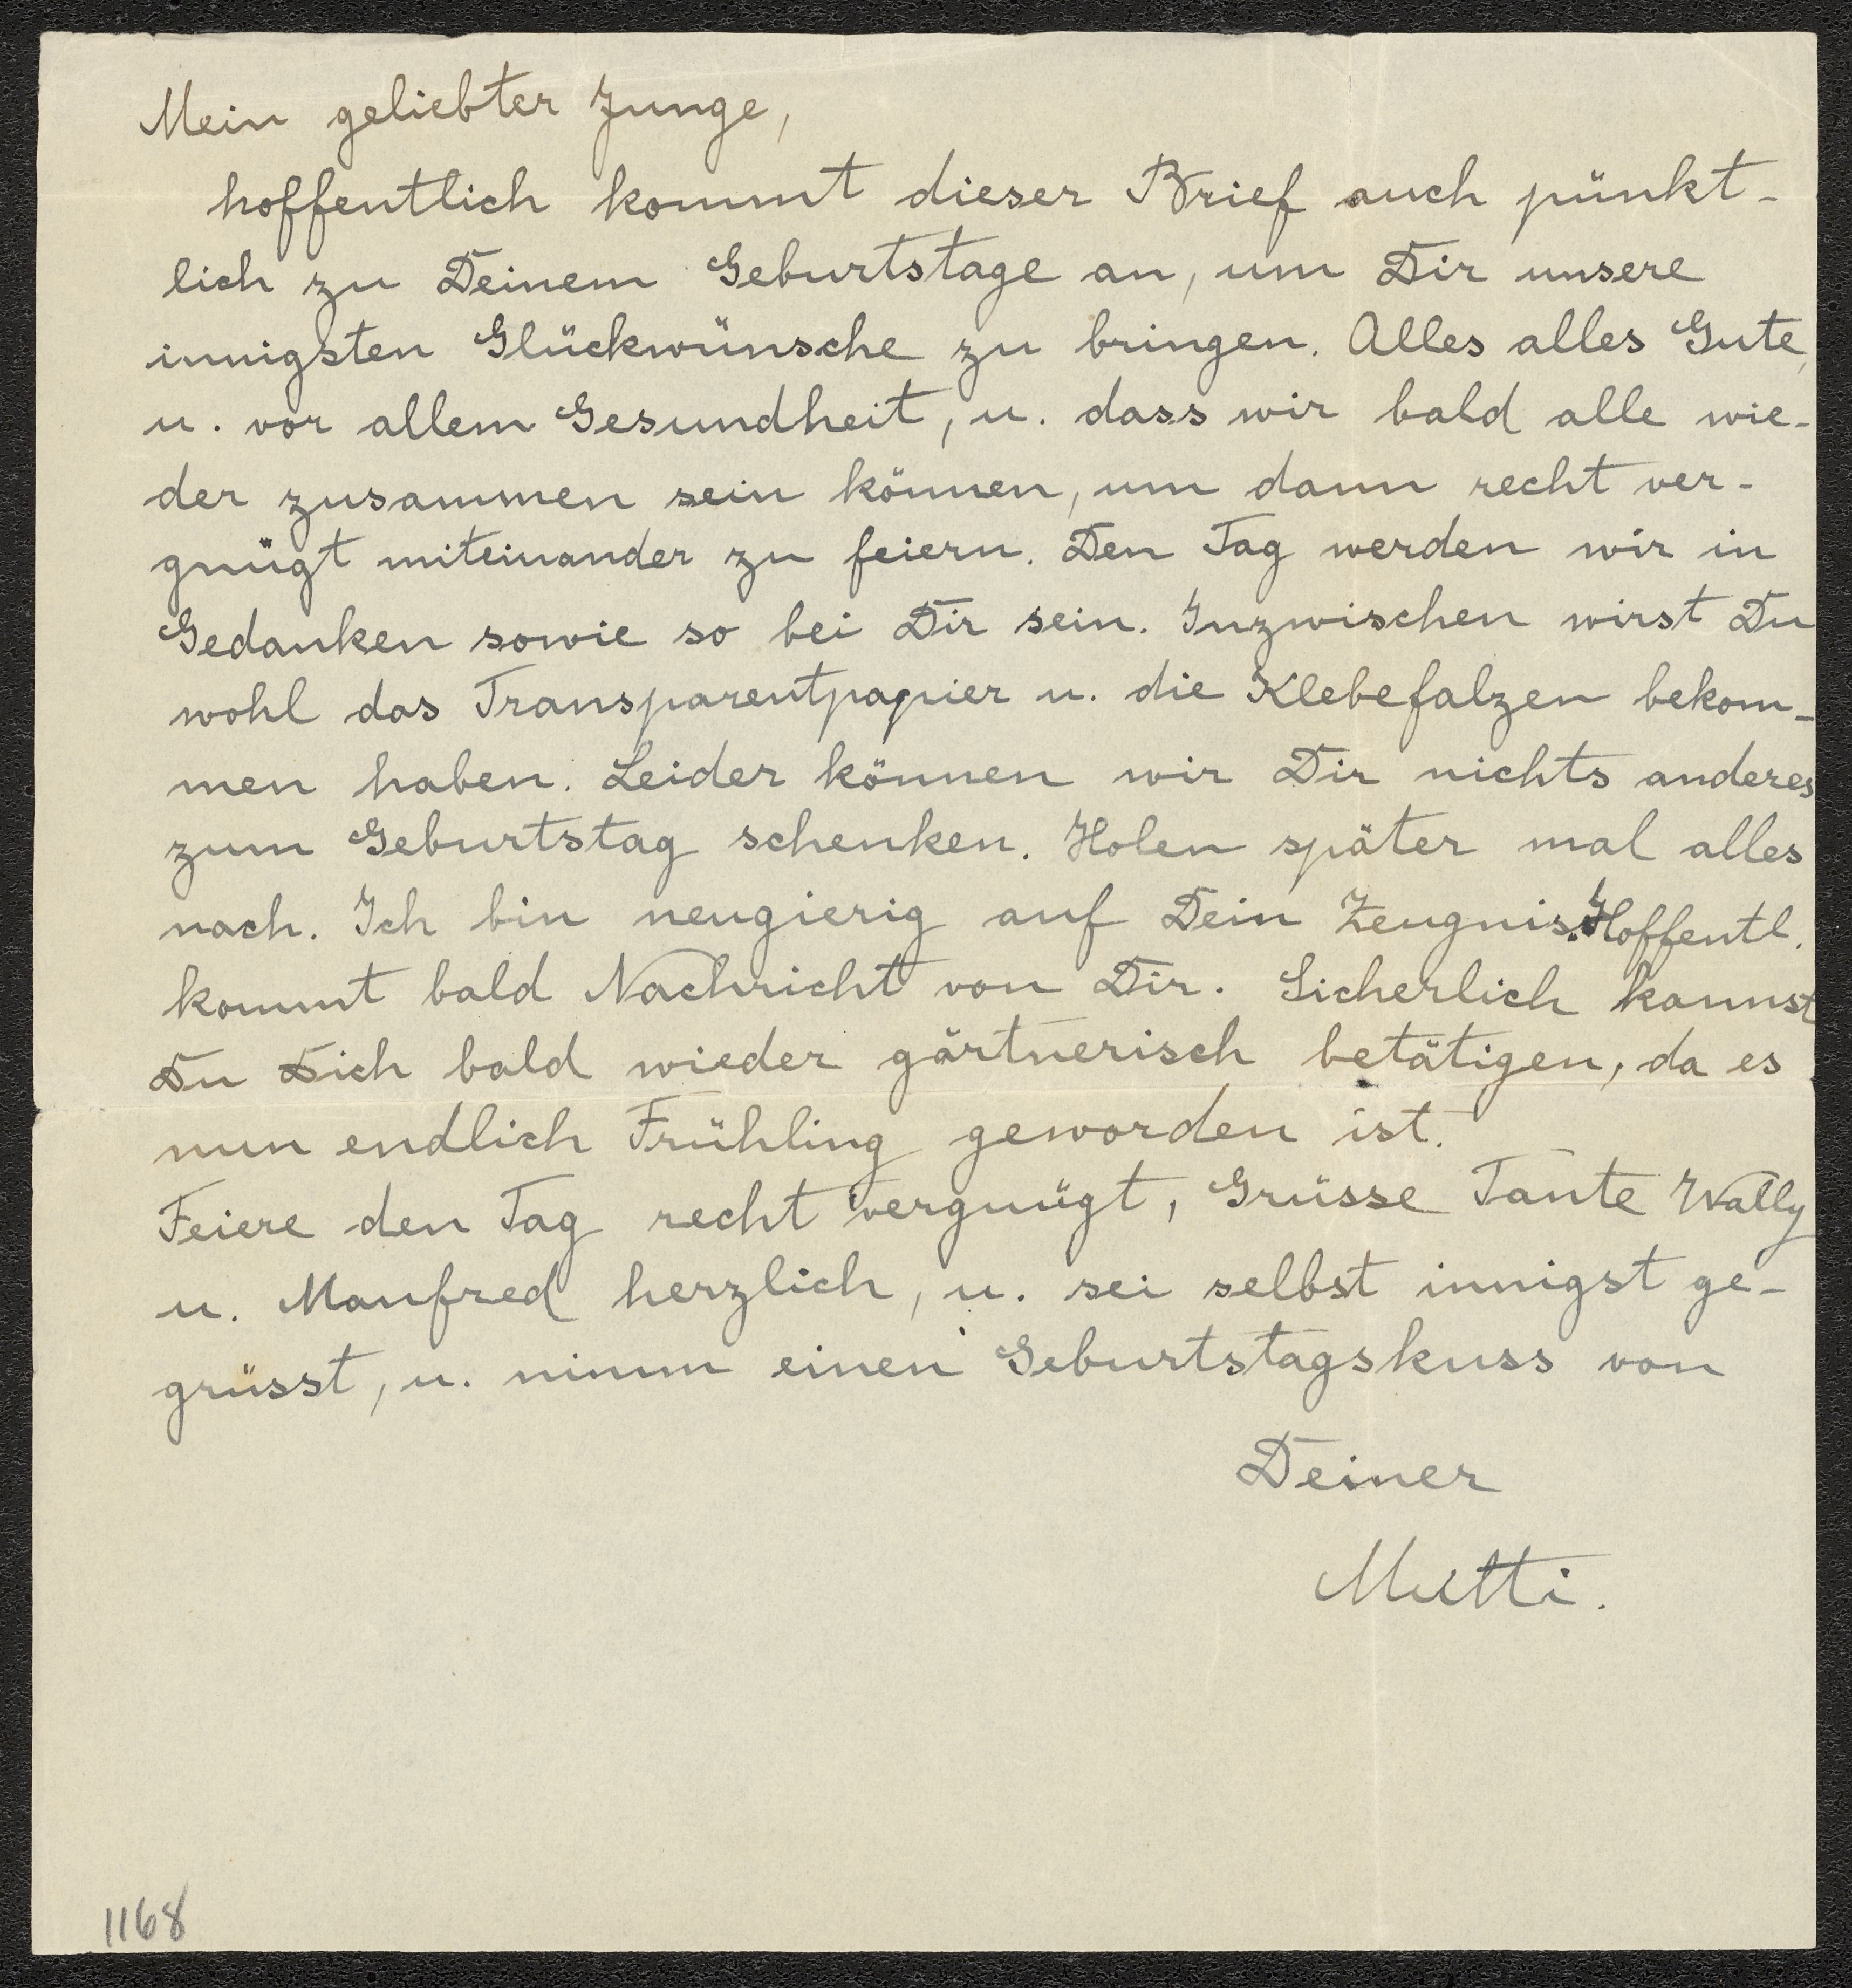 Mein geliebter Junge,
hoffentlich kommt dieser Brief auch pünkt-
lich zu Deinem Geburtstage an, um Dir unsere
innigsten Glückwünsche zu bringen. Alles alles Gute,
u. vor allem Gesundheit, u. dass wir bald alle wie-
der zusammen sein können, um dann recht ver-
gnügt miteinander zu feiern. Den Tag werden wir in
Gedanken sowie so bei Dir sein. Inzwischen wirst Du
wohl das Transparentpapier u. die Klebefalzen bekom-
men haben. Leider können wir Dir nichts anderes
zum Geburtstag schenken. Holen später mal alles
nach. Ich bin neugierig auf Dein Zeugnis. Hoffentl.
kommt bald Nachricht von Dir. Sicherlich kannst
Du Dich bald wieder gärtnerisch betätigen, da es
nun endlich Frühling geworden ist.
Feiere den Tag recht vergnügt, Grüsse Tante Wally
u. Manfred herzlich, u. sei selbst innigst ge-
grüsst, u. nimm einen Geburtstagskuss von
Deiner
Mutti.
1168